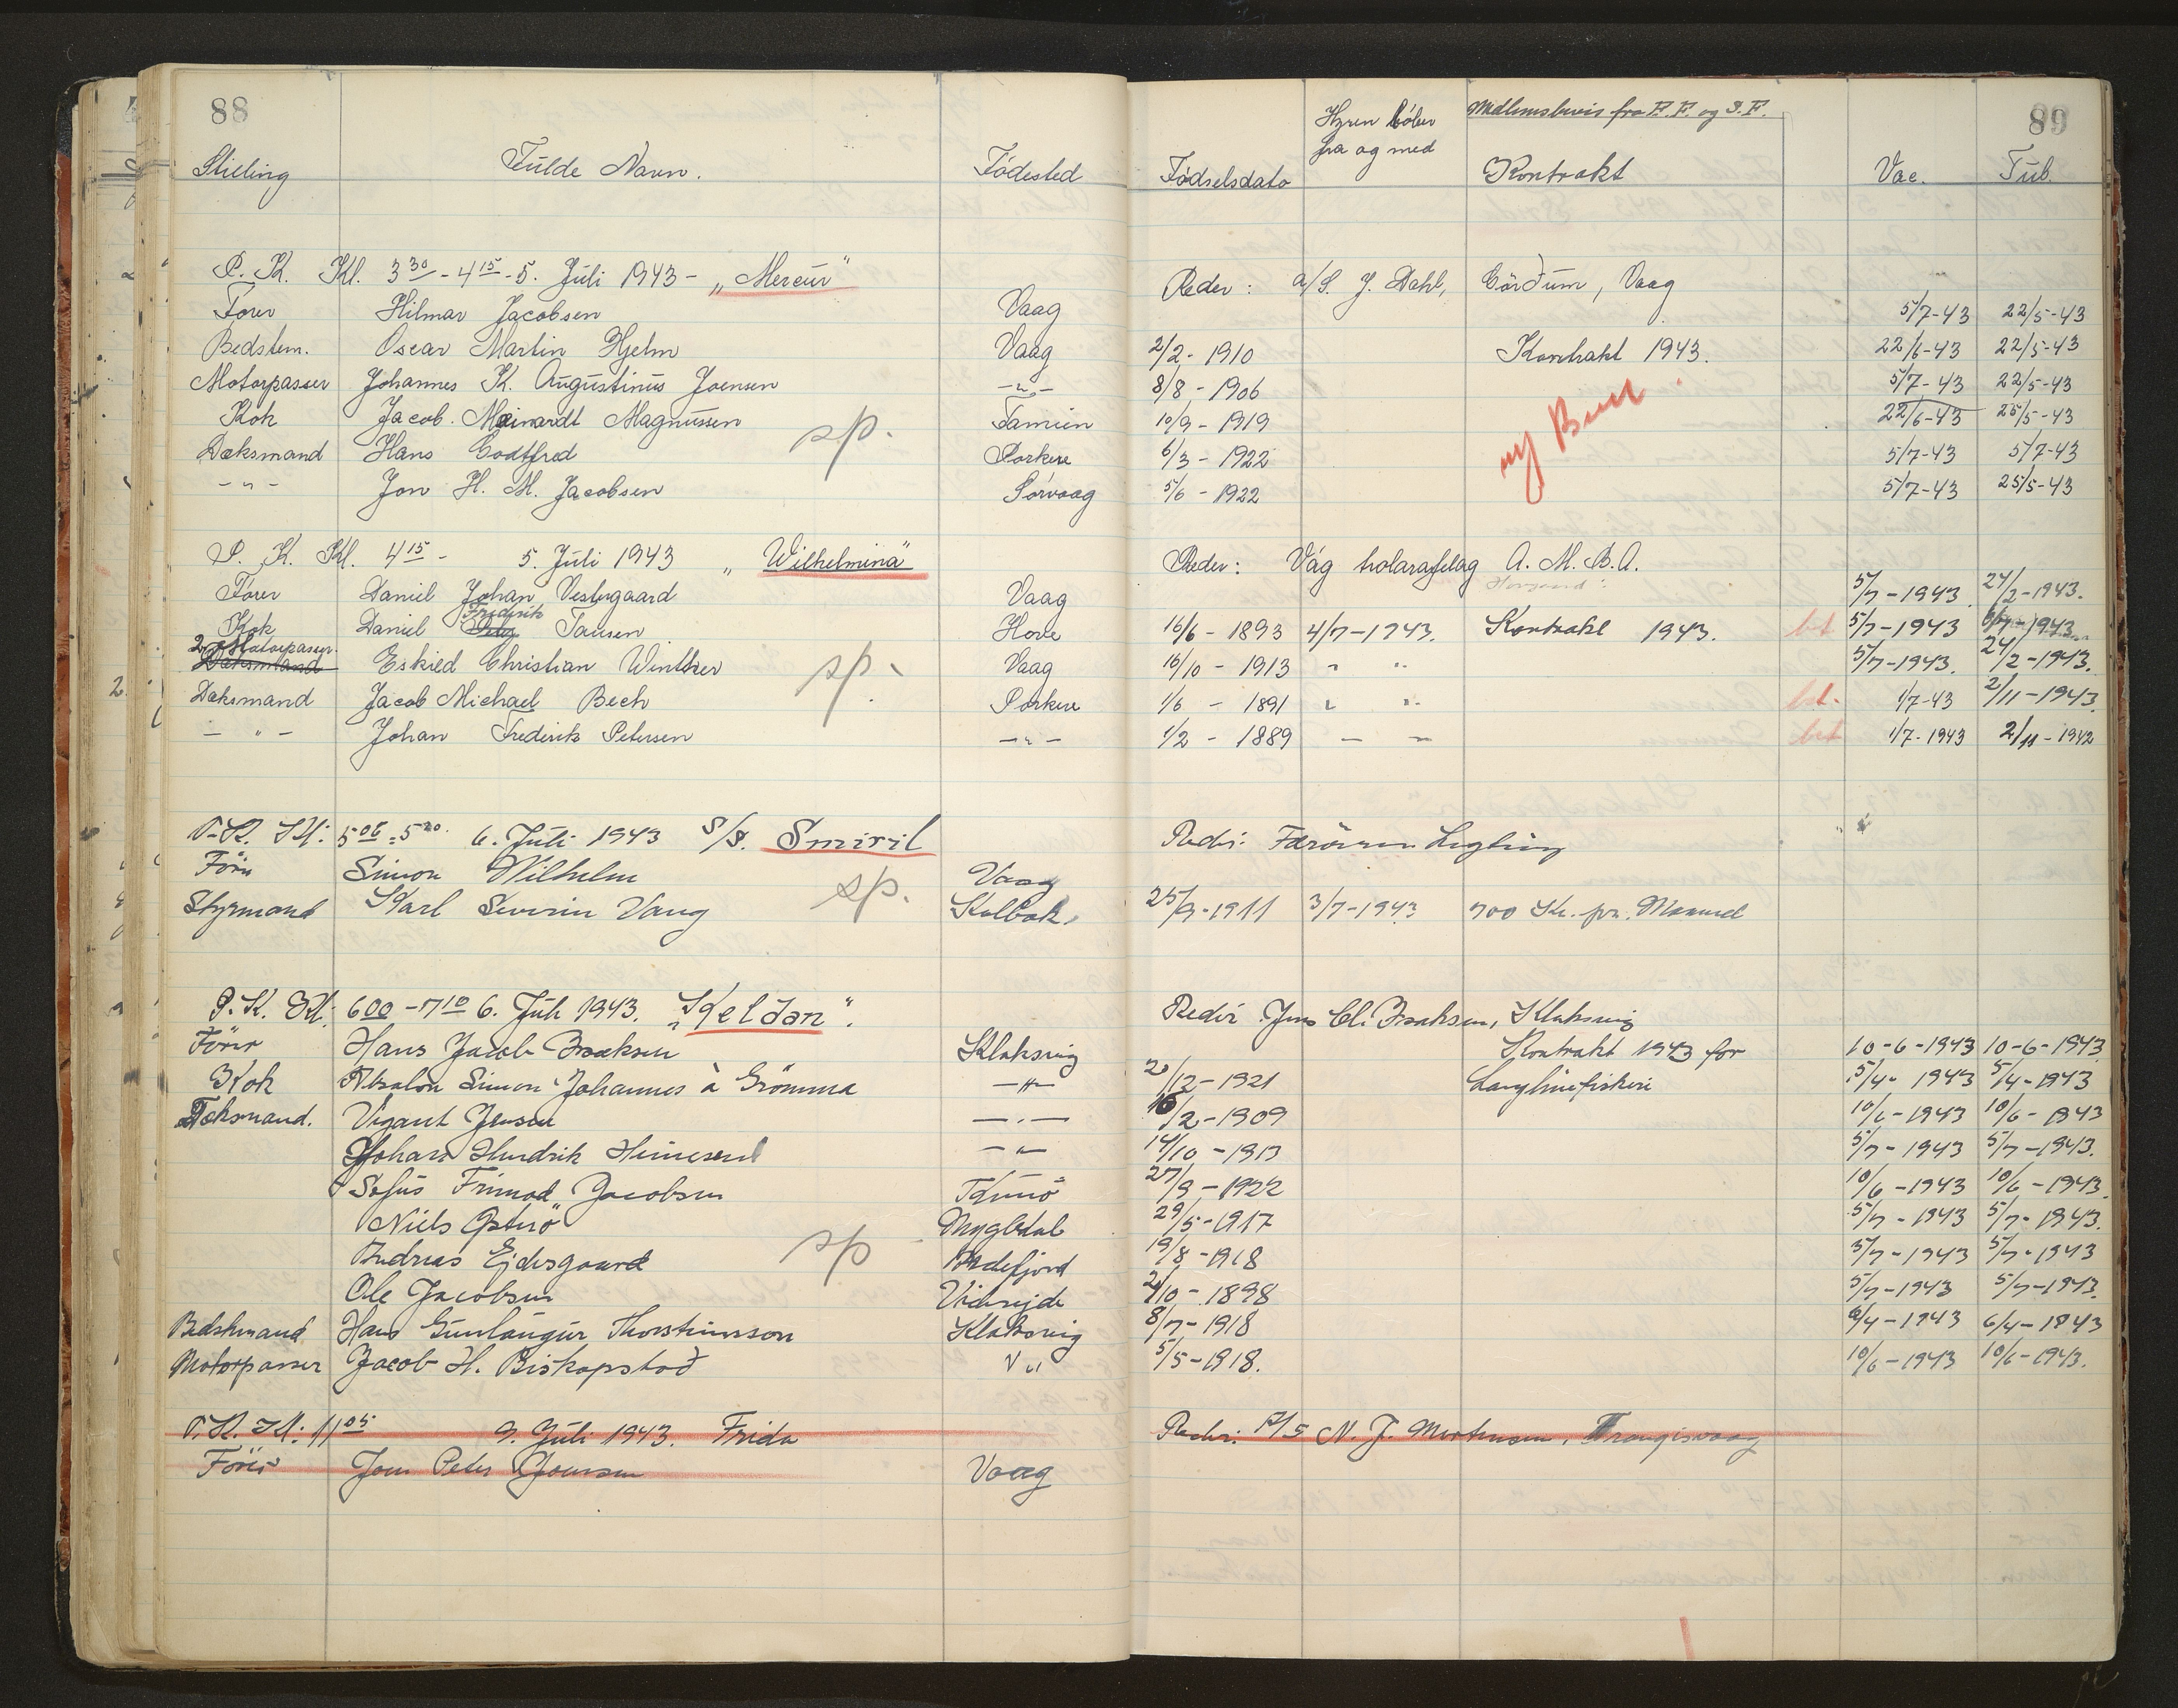 88
Stilling Fulde Navn. Fødested Fødselsdato Hyren løber fra og med Medlemsbevis fra F.F. og S.F. Kontrakt Vac. Tub. 89
P. K. Kl. 3 30 - 4 15 - 5. Juli 1943 - „Mercur" Reder: A/S. J. Dahl, Vaag
Fører Hilmar Jacobsen Vaag 5/7-43 22/5-43
Bedstem. Oscar Martin Hjelm Vaag 2/2 - 1910 Kontrakt 1943. 22/6-43 22/5-43
Motorpasser Johannes K. Augustinus Joensen -"- 8/8 - 1906 5/7-43 22/5-43
Kok Jacob Meinardt Magnussen sp. Famien 10/9 - 1919 ny 22/6-43 25/5-43
Dæksmand Hans Godtfred Porkere 6/3 - 1922 5/7-43 5/7-43
-"- Jon H. M. Jacobsen Sørvaag 5/6 - 1922 5/7-43 25/5-43
P. K. Kl. 4 15 - 5. Juli 1943 „Wilhelmina" Reder: Vág trolarafelag A. M. B. A.
Fører Daniel Johan Vestergaard Vaag 5/7-1943 24/2-1943.
Kok Daniel Frederik Tausen Hove 16/6 - 1893 4/7-1943. Kontrakt 1943. bt 5/7-1943
2. Motorpasser Dæksmand Eskild Christian Winther sp. Vaag 16/10 - 1913 " " 5/7-1943. 24/2-1943.
Dæksmand Jacob Michael Bech Porkere 1/6 - 1891 " " bt. 1/7-43 2/11-1943.
-"- Johan Frederik Petersen -"- 1/2 - 1889 - - bet 1/7-1943 2/11-1942
P. K. Kl: 5 05 - 5 20. 6. Juli 1943 S/S. Smiril Reder:
Förer Simon Wilhelm sp. Vaag
Styrmand Karl Severin Vang Kolbak. 25/9-1911 3/7-1943 700 Kr. pr. Maaned
P. K. Kl: 600 - 7 10 6. Juli 1943. „Keldan". Reder Jens Chl. Isaksen, Klaksvig
Förer Hans Jacob Isaksen Klaksvig Kontrakt 1943 for 10-6-1943 10-6-1943
Kok Absalon Simon Johannes á Grömma -"- 2/12-1921 Langlinefiskeri 5/4-1943 5/4-1943
Dæksmand. Vigant Jensen -"- 16/2-1909 10/6-1943 10/6-1943
Johan Hendrik Heinesen -"- 14/10-1913 5/7-1943 5/7-1943.
Sofus Frimod Jacobsen Kunö 27/9-1922 10/6-1943 10/6-1943
Niels Østerö Mygledal 29/5-1917 5/7-1943 5/7-1943.
Andreas Ejdesgaard sp Andefjord 19/8-1918 5/7-1943 5/7-1943
Ole Jacobsen Videreide 2/10-1898 5/7-1943 5/7-1943.
Bedstmand Hans Gunlaugur Thorsteinsson Klaksvig 8/7-1918 6/4-1943 6/4-1943
Motorpasser Jacob H. Biskopstod " 5/5-1918. 10/6-1943 10/6-1943.
P. K. Kl: 11 05 9. Juli 1943. Frida Reder: A/S N. J. Mortensen, Trangisvaag
Förer Jens Peter Joensen Vaag